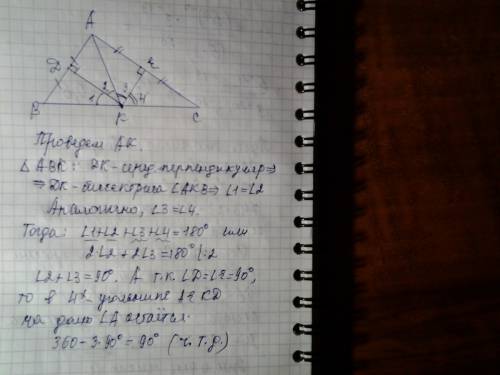 A
D
2
3
1
4
B
K
C
Проведем АК.
△ АВК: DК - серед. перпендикуляр ⇒
⇒ DК - биссектриса ∠AKB ⇒ ∠1=∠2
Аналогично, ∠3=∠4.
Тогда: ∠1+∠2+∠3+∠4=180° или
2∠2+2∠3=180° |:2
∠2+∠3=90°. А т.к. ∠D=∠E=90°,
то в 4х-угольнике AEKD
на долю ∠A остаётся
360-3·90°=90° (ч.т.д.)